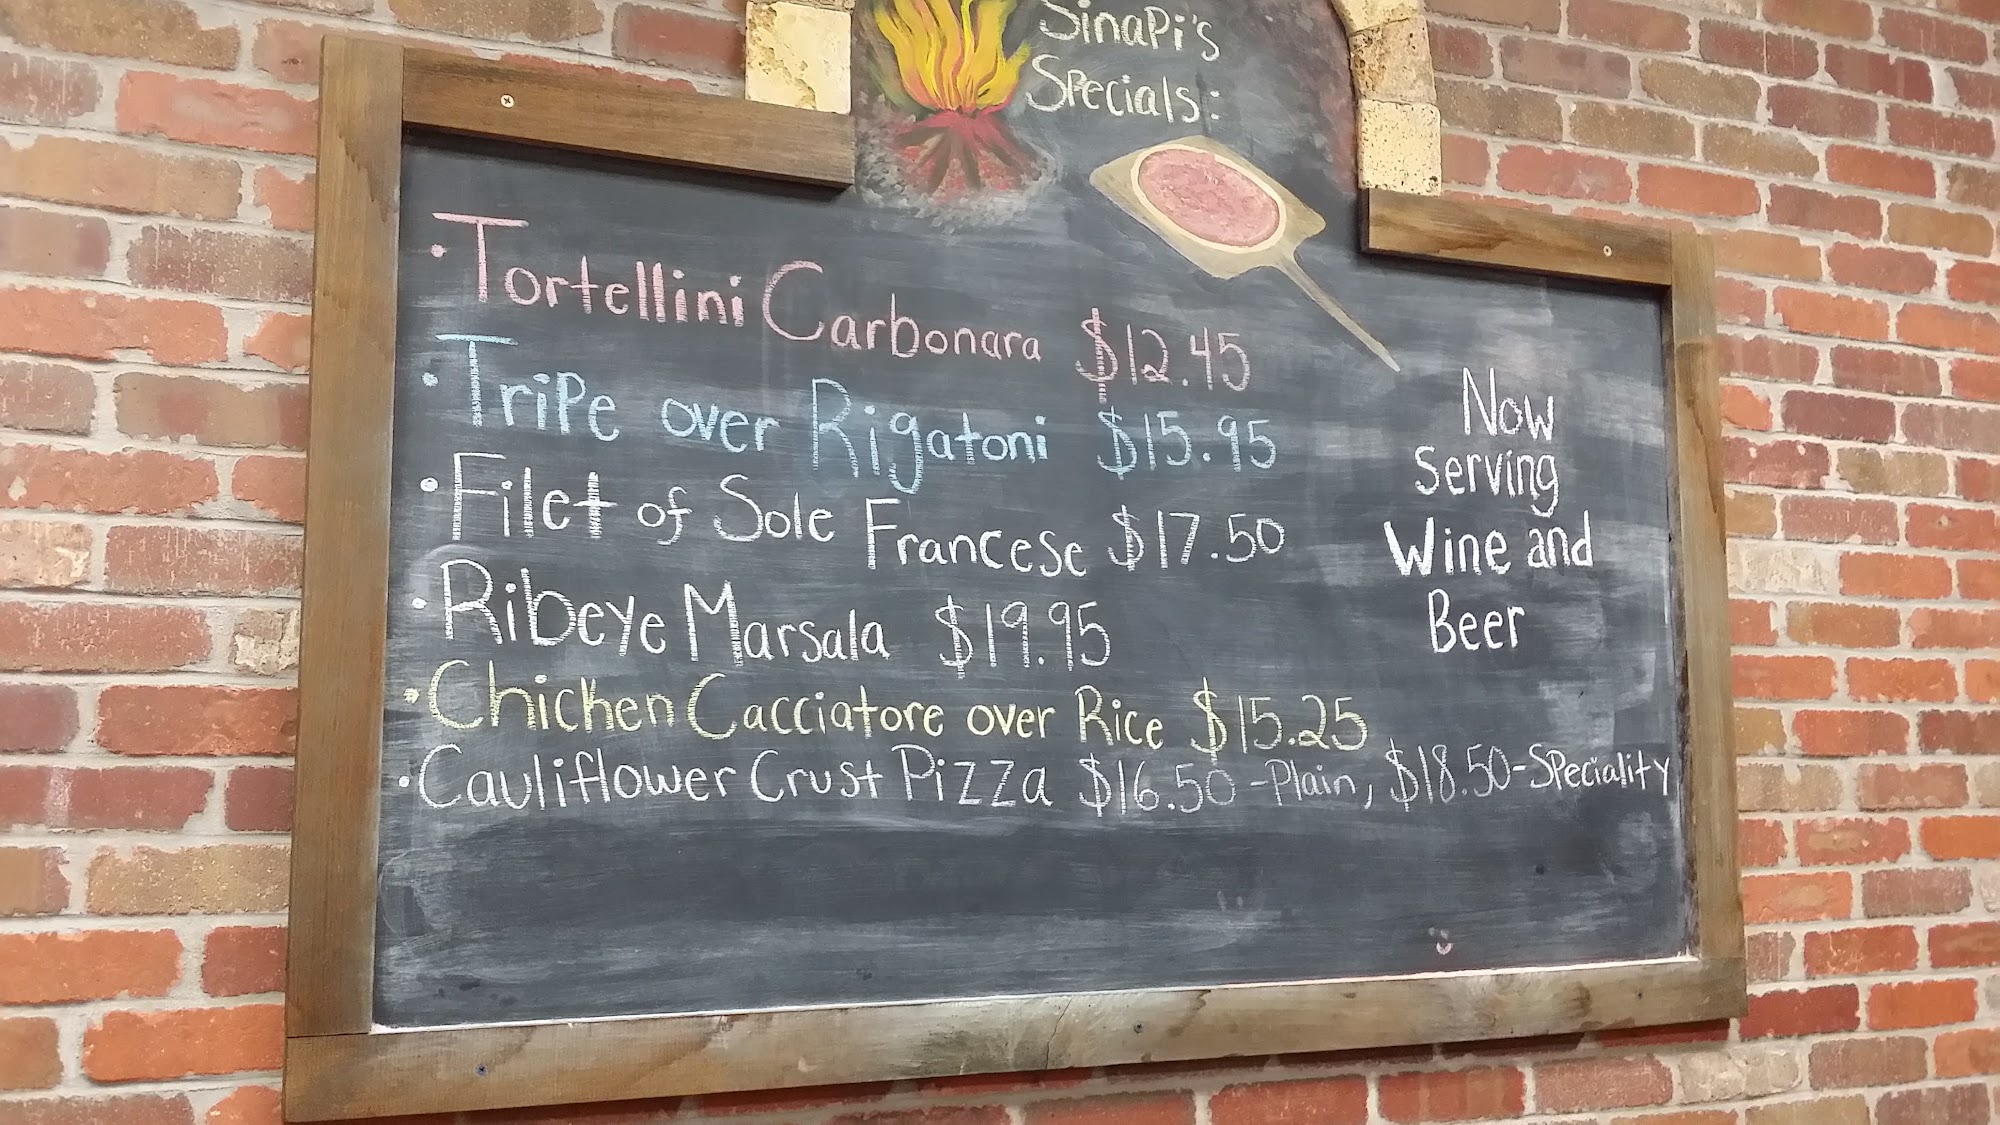 SinaPi's
Specials:
• Tortellini Carbonara $12.45
• Tripe over Rigatoni $15.95
• Filet of Sole Francese $17.50
• Ribeye Marsala $19.95
• Chicken Cacciatore over Rice $15.25
• Cauliflower Crust Pizza $16.50 - Plain, $18.50 - Speciality
Now
Serving
Wine and
Beer